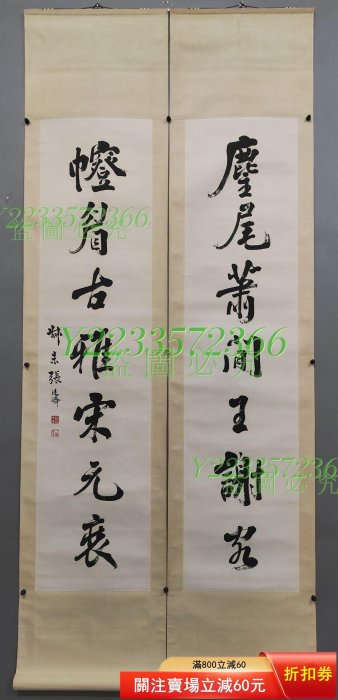 麈尾蕭閒王謝
古雅宋元
叔未張廷濟
Y2233572366
盜圖必究
Y2233572366
盜圖必究
Y2233572366
盜圖必究
滿800立減60
關注賣場立減60元
折扣券